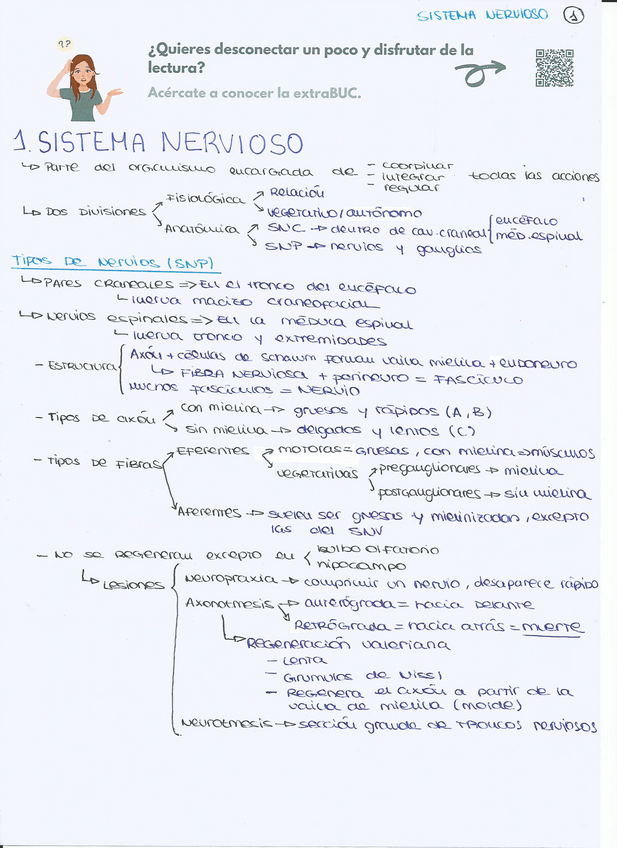 SISTEMA NERVIOSO 1
??
¿Quieres desconectar un poco y disfrutar de la
lectura?
Acércate a conocer la extraBUC.
1. SISTEMA NERVIOSO
↳ Parte del organismo encargada de - coordinar
- integrar todas las acciones
- regular
↳ DOS DIVISIONES
Fisiológica → Relación
→ vegetativo/autónomo
Anatómica → SNC → dentro de cav. craneal { encéfalo
méd. espinal
→ SNP → nervios y ganglios
TIPOS DE NERVIOS (SNP)
↳ PARES CRANEALES => En el tronco del encéfalo
└ inerva macizo craneofacial
↳ Nervios espinales => En la médula espinal
└ inerva tronco y extremidades
- ESTRUCTURA { Axón + células de schawn forman vaina mielina + endoneuro
↳ FIBRA NERVIOSA + perineuro = FASCÍCULO
Muchos fascículos = NERVIO
- TIPOS DE axón → con mielina → gruesos y rápidos (A, B)
→ sin mielina → delgados y lentos (C)
- TIPOS DE FIBRAS → EFERENTES → MOTORAS = GRUESAS, con mielina => músculos
→ vegetativas → preganglionares → mielina
→ postganglionares → sin mielina
→ AFERENTES → suelen ser gruesas y mielinizadas, excepto
las del SNV
- NO se REGENERAN excepto en < bulbo olfatorio
hipocampo
↳ Lesiones { Neuropraxia → comprimir un nervio, desaparece rápido
Axonotmesis → anterógrada = hacia delante
→ RETRÓGRADA = hacia atrás = muerte
↳ REGENERACIÓN valeriana
- Lenta
- Grumulos de Nissl
- REGENERA el axón a partir de la
vaina de mielina (molde)
Neurotmesis → sección grande de TRONCOS NERVIOSOS